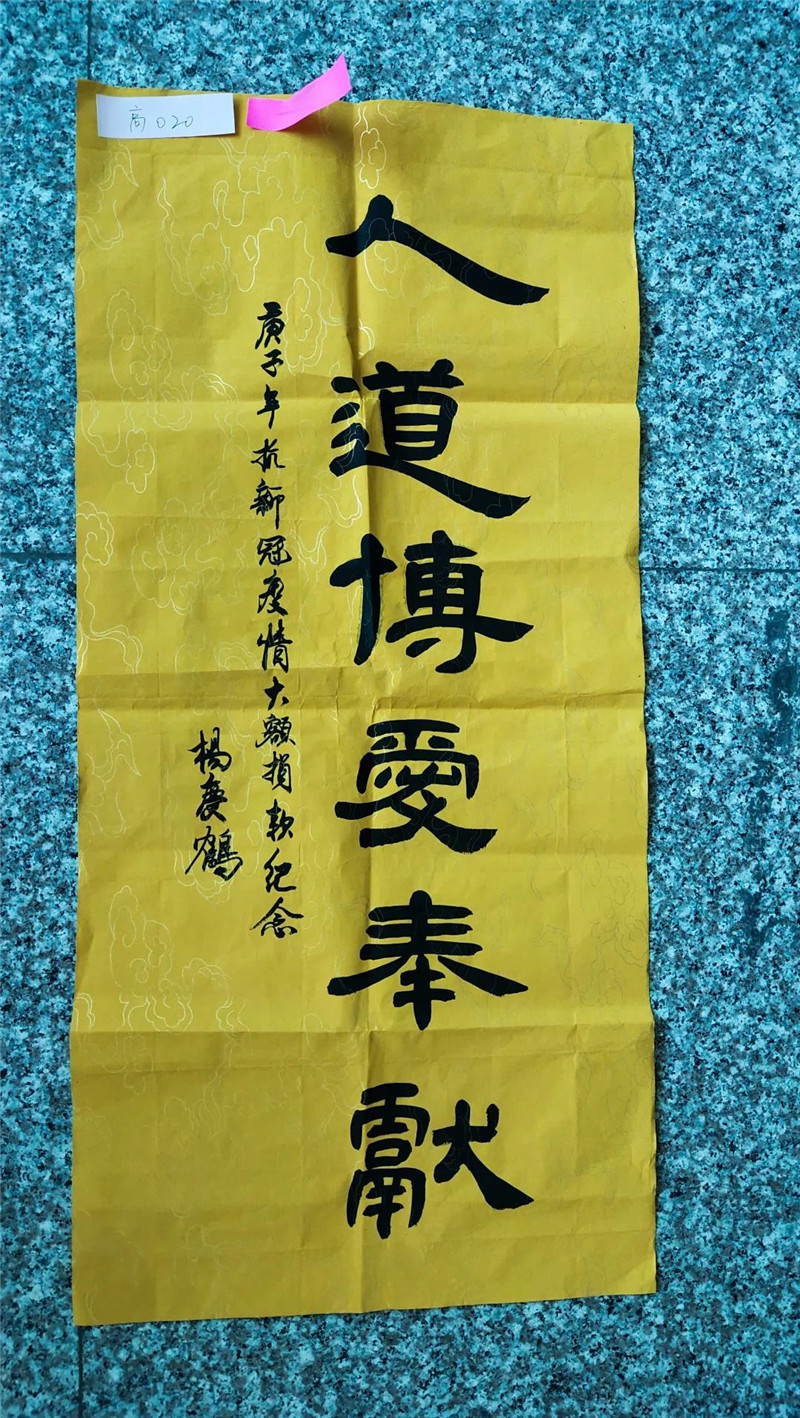 高020
人道博愛奉獻
庚子年抗新冠疫情大额捐款纪念
楊慶鶴